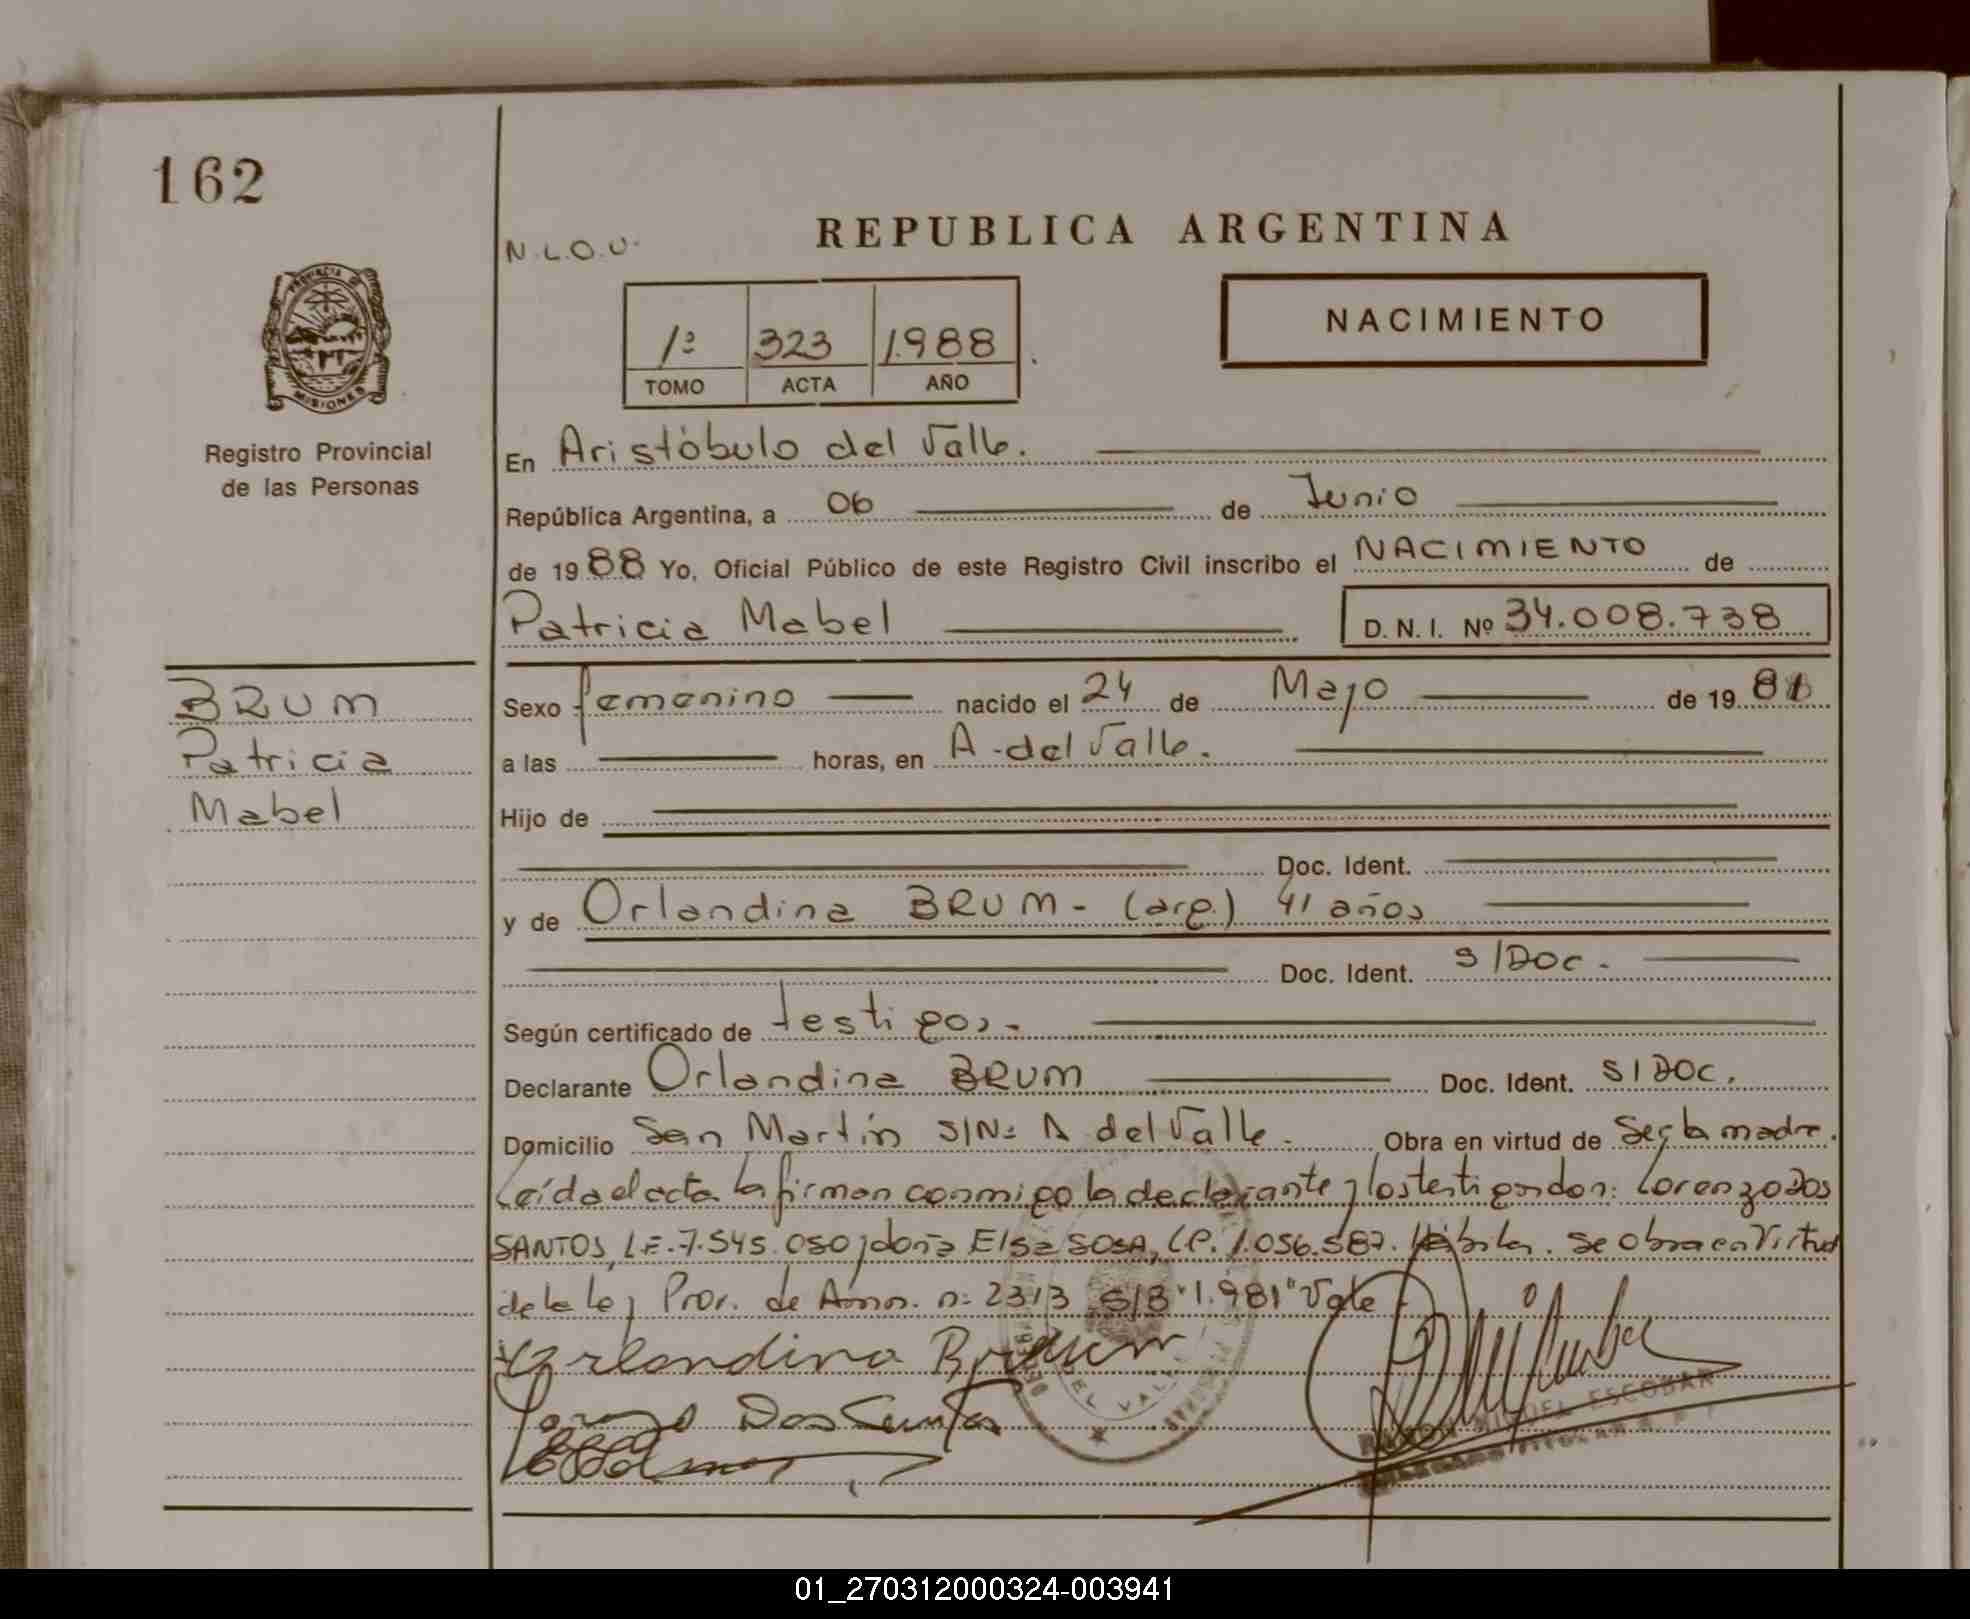 162
N.L.O.U.
REPUBLICA ARGENTINA
PROVINCIA DE
MISIONES
Registro Provincial
de las Personas
1º 323 1.988
TOMO ACTA AÑO
NACIMIENTO
En Aristóbulo del Valle.
República Argentina, a 06 de Junio
de 1988 Yo, Oficial Público de este Registro Civil inscribo el NACIMIENTO de
Patricia Mabel D.N.I. Nº 34.008.738
BRUM
Patricia
Mabel
Sexo femenino nacido el 24 de Mayo de 1981
a las horas, en A. del Valle.
Hijo de
Doc. Ident.
y de Orlandina BRUM - (arg.) 41 años
Doc. Ident. S/Doc.
Según certificado de testigos.-
Declarante Orlandina BRUM Doc. Ident. S/DOC.
Domicilio San Martín S/Nº A del Valle. Obra en virtud de Ser la madre.
Leída el acta la firman conmigo la declarante y los testigos don: Lorenzo DOS
SANTOS, L.E. 7.545.050 y doña Elsa SOSA, C.P. 1.056.587. Hábiles. Se obra en Virtud
de la ley Prov. de Amn. nº 2313 S/B "1.981" Vale
Orlandina Brum
Lorenzo Dos Santos
DEL VALLE
RAMON MIGUEL ESCOBAR
01_270312000324-003941